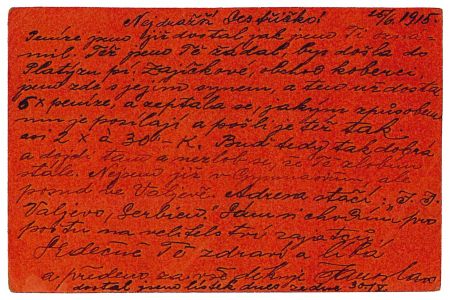 Nejdražší Sestřičko! 25/6. 1915.
Peníze jsem již dostal jak jsem Ti ozna-
mil. Též jsem Tě žádal bys došla do
Platýzu pí. Zajíčkové, obchod koberci
jsem zde s jejím synem, a ten už dostal
6x peníze, a zeptala se, jakým způsobem
mu je posílají a pošli je též tak
asi 2 x à 30 K. Buď tedy tak dobrá
a dojdi tam a nezlob se, že Tě zlobím
stále. Nejsem již v Gymnasium, ale
ve Valjevě. Adresa stačí: „
Valjevo, Serbien." chodím pro
poštu na velitelství zajatců.
Srdečně Tě zdraví a líbá
a předem za vše děkuje
dostal jsem lístek dnes ze dne 30/V.